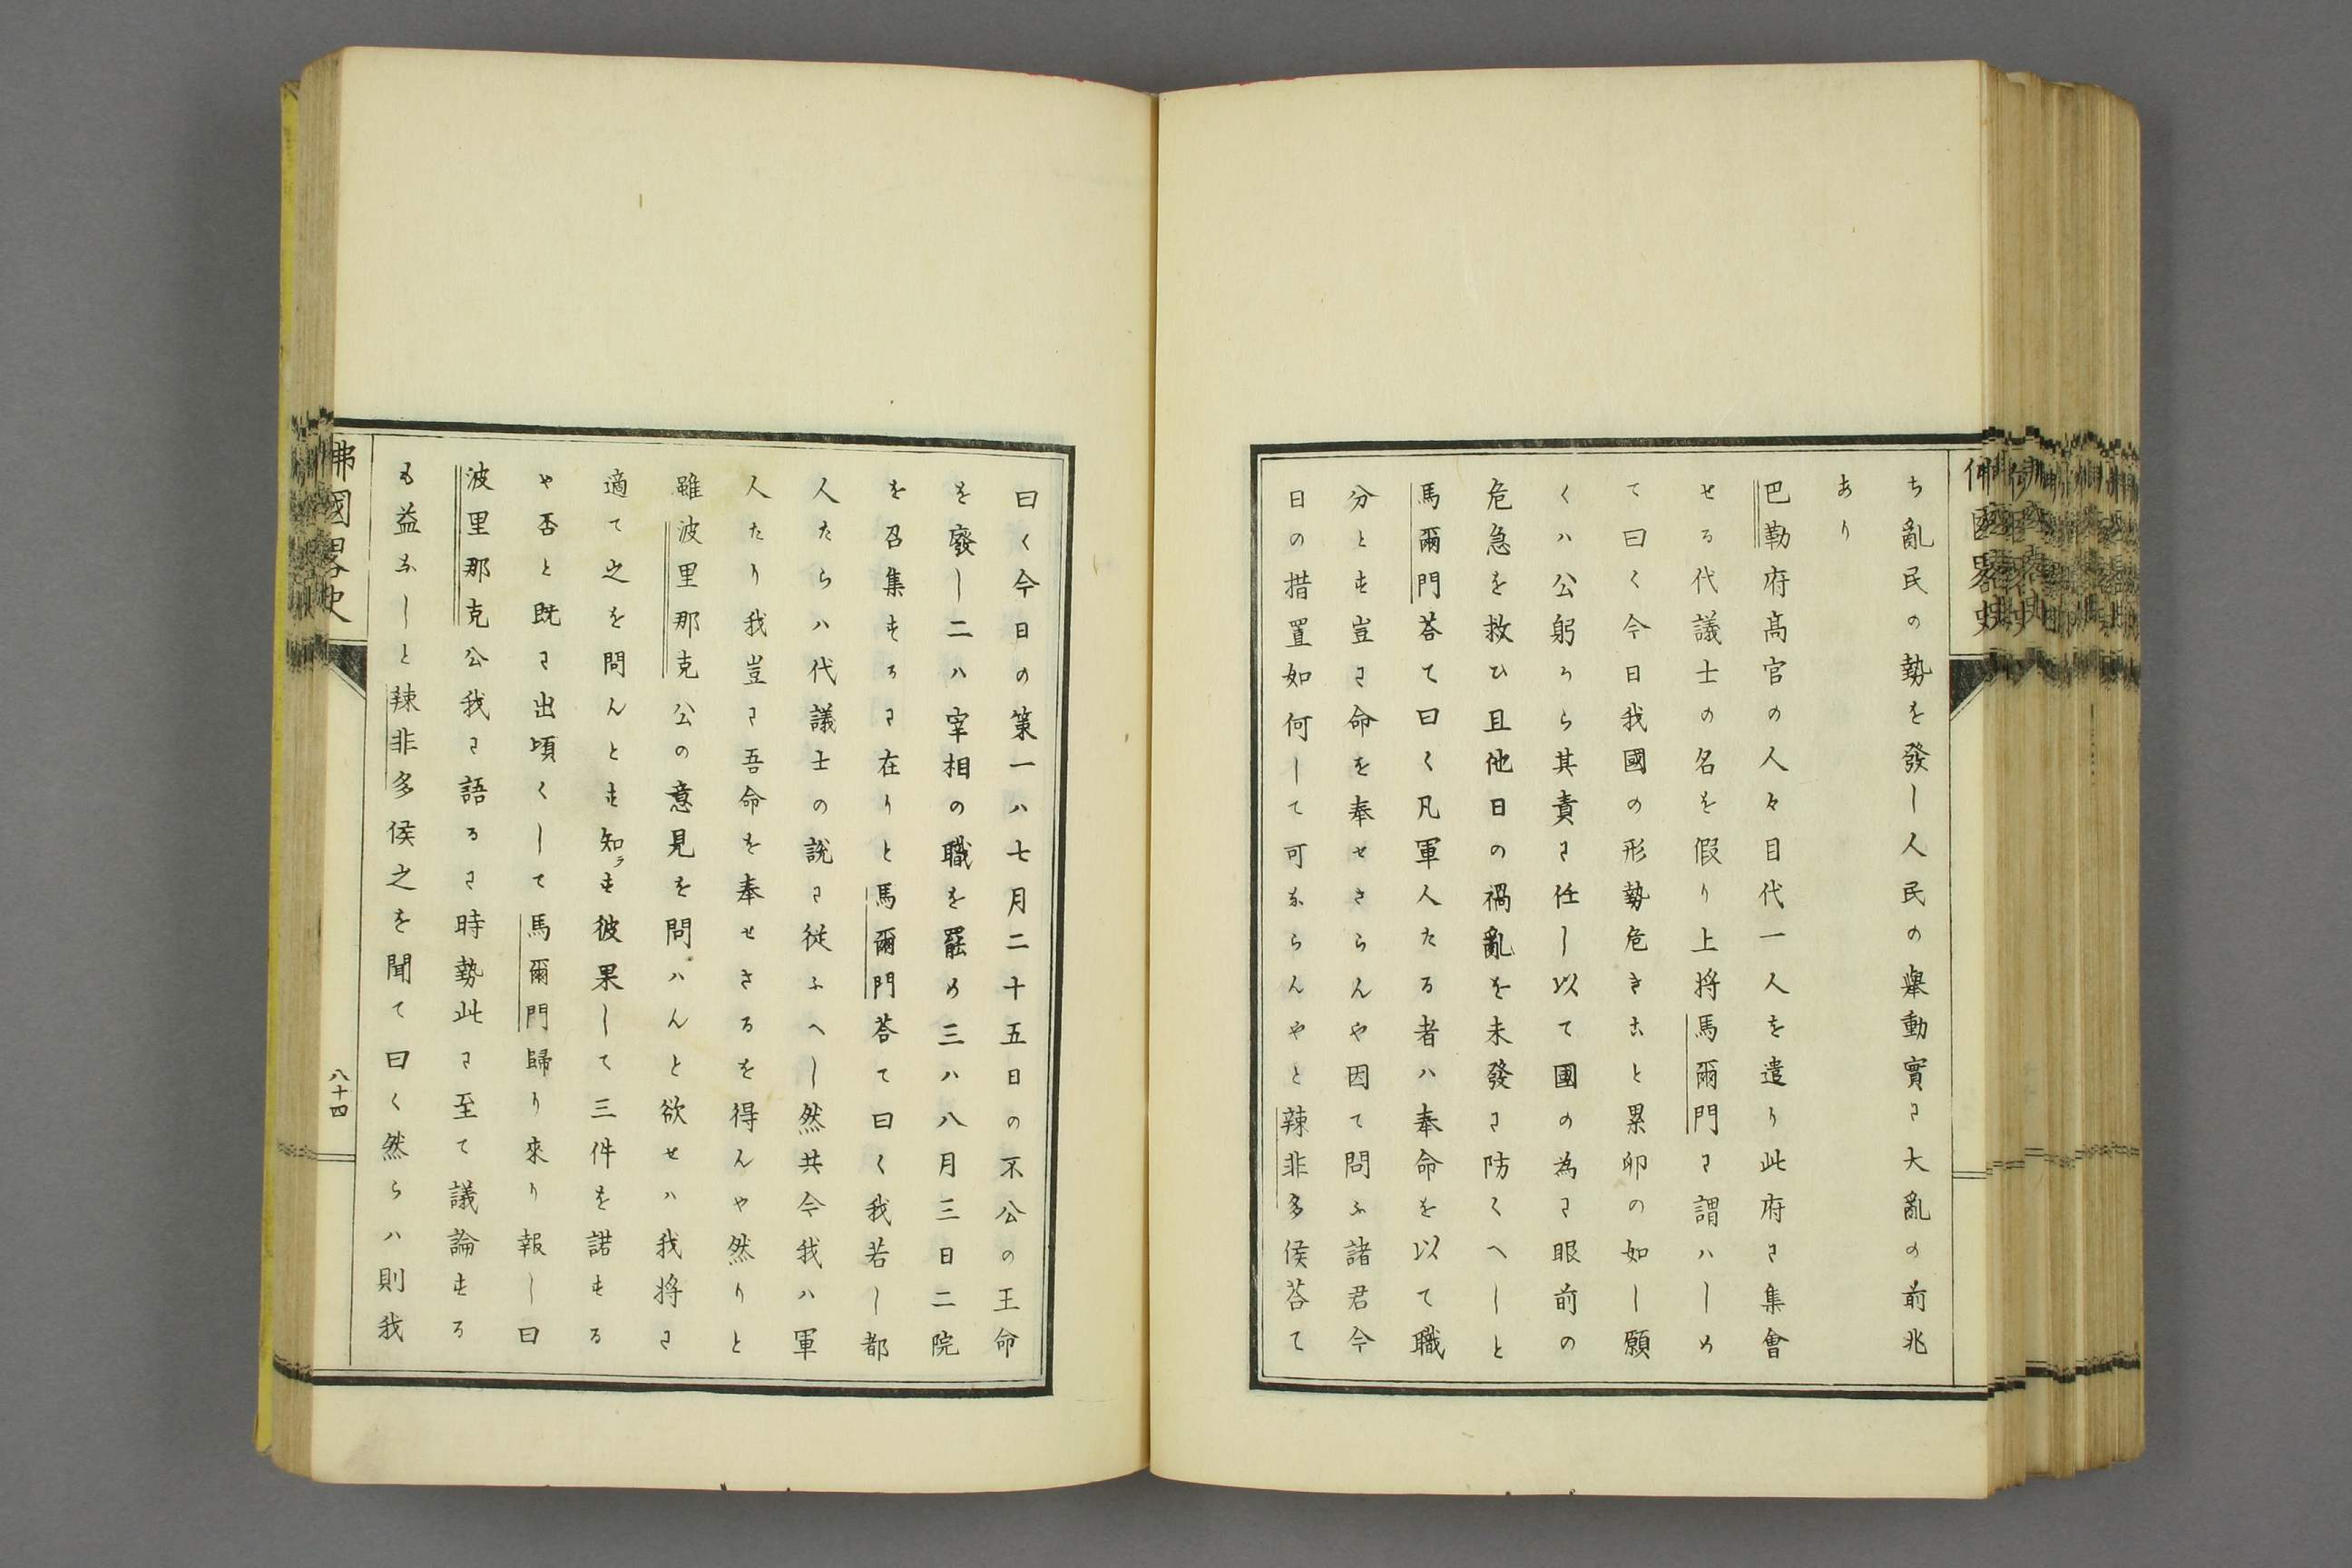 ち亂民の勢を發し人民の擧動實に大亂の前兆
あり
巴勒府髙官の人々目代一人を遣り此府に集會
せる代議士の名を假り上将馬爾門に謂ハしめ
て曰く今日我國の形勢危きこと累卵の如し願
くハ公躬から其責に任し以て國の為に眼前の
危急を救ひ且他日の禍亂を未發に防くへしと
馬爾門荅て曰く凡軍人たる者ハ奉命を以て職
分とす豈に命を奉せさらんや因て問ふ諸君今
日の措置如何して可ならんやと辣非多侯荅て
曰く今日の策一ハ七月二十五日の不公の王命
を廢し二ハ宰相の職を罷め三ハ八月三日二院
を召集するに在りと馬爾門荅て曰く我若し都
人たらハ代議士の說に従ふへし然共今我ハ軍
人たり我豈に吾命を奉せさるを得んや然りと
雖波里那克公の意見を問ハんと欲せハ我将に
適て之を問んとす知ラす彼果して三件を諾する
や否と既に出頃くして馬爾門歸り來り報し曰
波里那克公我に語るに時勢此に至て議論する
も益なしと辣非多侯之を聞て曰く然らハ則我
佛國畧史
八十四